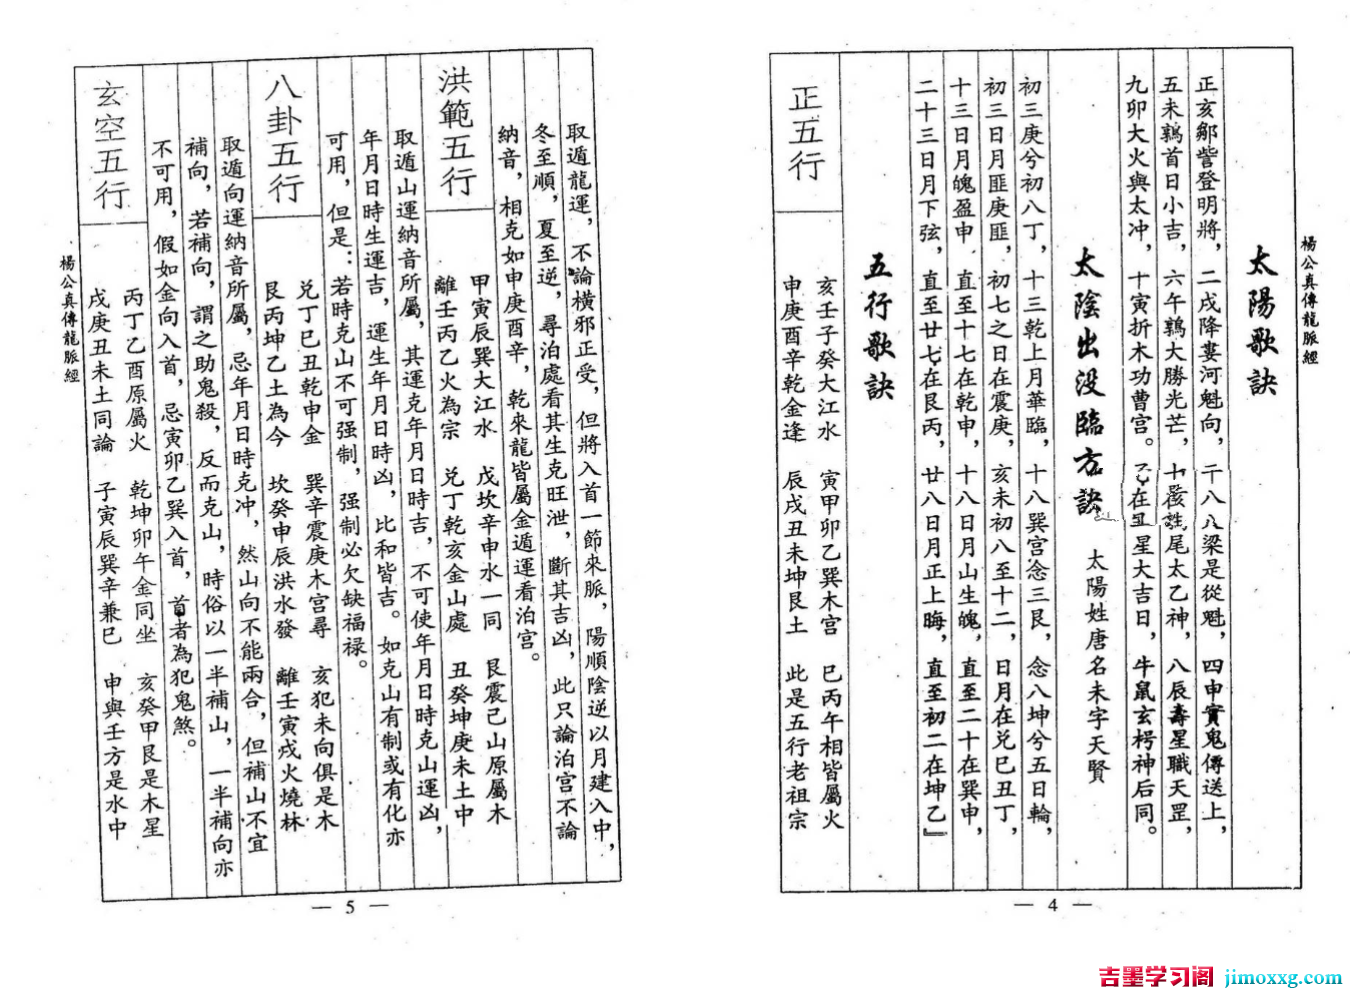 楊公真傳龍脈經
太陽歌訣
正亥鄒訾登明將，二戌降婁河魁向，
八梁是從魁，四申實鬼傳送上，
五未鶉首日小吉，六午鶉大勝光芒，
尾太乙神，八辰壽星職天罡，
九卯大火與太冲，十寅折木功曹宫。
在
星大吉日，牛鼠玄枵神后同。
太陰出没臨方訣
太陽姓唐名未字天賢
初三庚兮初八丁，十三乾上月華臨，十八巽宫念三艮，念八坤兮五日輪，
初三日月匪庚匪，初七之日在震庚，亥未初八至十二，日月在兑巳丑丁，
十三日月魄盈申，直至十七在乾申，十八日月山生魄，直至二十在巽申，
二十三日月下弦，直至廿七在艮丙，廿八日月正上晦，直至初二在坤乙』
五行歌訣
正五行
亥壬子癸大江水　寅甲卯乙巽木宫　巳丙午相皆屬火
申庚酉辛乾金逢　辰戌丑未坤艮土　此是五行老祖宗
— 4 —
取遁龍運，不論橫邪正受，但將入首一節來脈，陽順陰逆以月建入中，
冬至順，夏至逆，尋泊處看其生克旺泄，斷其吉凶，此只論泊宫不論
納音，相克如申庚酉辛，乾來龍皆屬金遁運看泊宫。
洪範五行
甲寅辰巽大江水　戊坎辛申水一同　艮震己山原屬木
離壬丙乙火為宗　兑丁乾亥金山處　丑癸坤庚未土中
取遁山運納音所屬，其運克年月日時吉，不可使年月日時克山運凶，
年月日時生運吉，運生年月日時凶，比和皆吉。如克山有制或有化亦
可用，但是：若時克山不可强制，强制必欠缺福禄。
八卦五行
兑丁巳丑乾申金　巽辛震庚木宫尋　亥犯未向俱是木
艮丙坤乙土為今　坎癸申辰洪水發　離壬寅戌火燒林
取遁向運納音所屬，忌年月日時克冲，然山向不能兩合，但補山不宜
補向，若補向，謂之助鬼殺，反而克山，時俗以一半補山，一半補向亦
不可用，假如金向入首，忌寅卯乙巽入首，首者為犯鬼煞。
玄空五行
丙丁乙酉原屬火　乾坤卯午金同坐　亥癸甲艮是木星
戌庚丑未土同論　子寅辰巽辛兼巳　申與壬方是水中
楊公真傳龍脈經
— 5 —
吉墨学习阁 jimoxxg.com